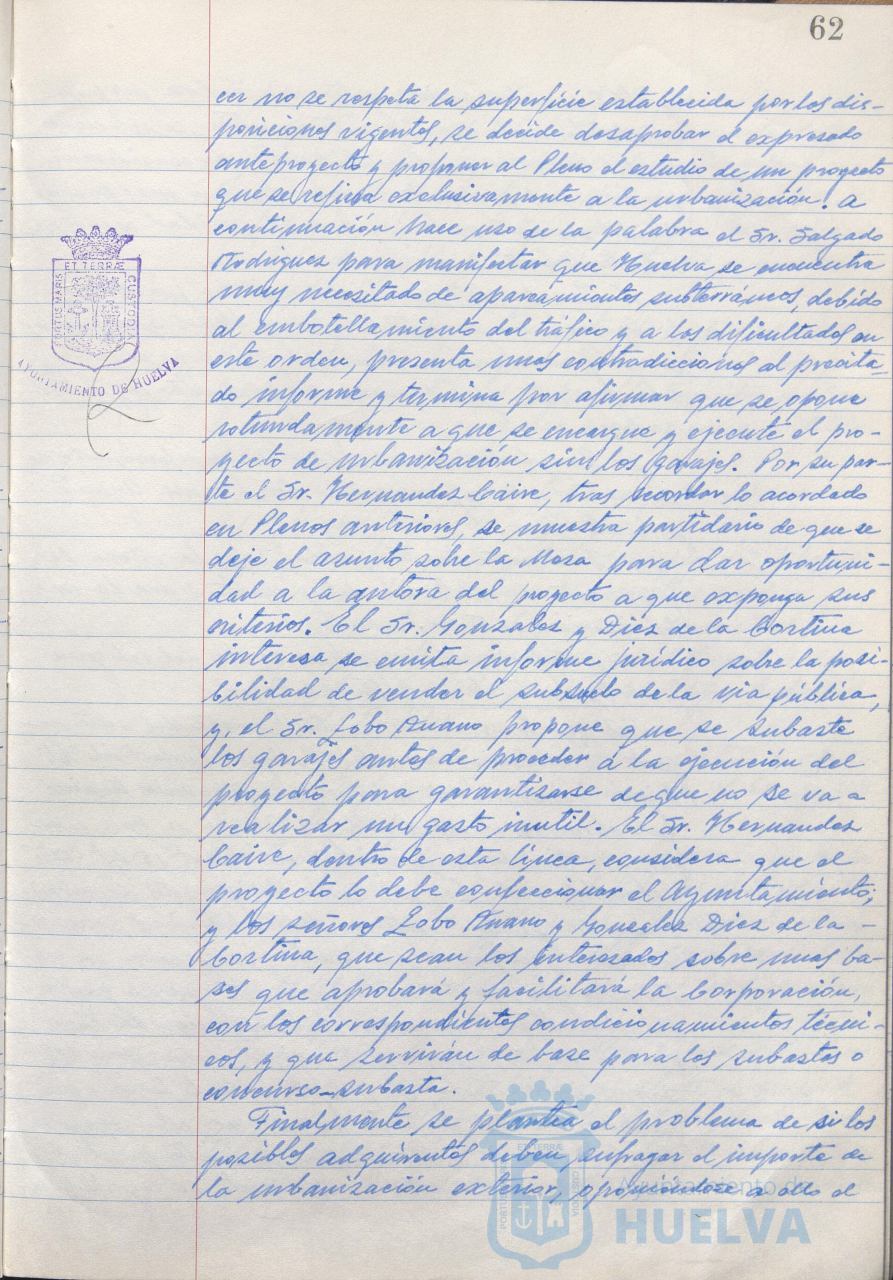 62
cer no se respeta la superficie establecida por las dis-
posiciones vigentes, se decide desaprobar el expresado
anteproyecto y proponer al Pleno el estudio de un proyecto
que se refiera exclusivamente a la urbanización. A
continuación hace uso de la palabra el Sr. Salgado
Rodriguez para manifestar que Huelva se encuentra
muy necesitado de aparcamientos subterráneos, debido
al embotellamiento del tráfico y a las dificultades en
este orden, presenta unas contradicciones al precita-
do informe y termina por afirmar que se opone
rotundamente a que se encargue y ejecute el pro-
yecto de urbanización sin los garajes. Por su par-
te el Sr. Hernandez Caire, tras recordar lo acordado
en Plenos anteriores, se muestra partidario de que se
deje el asunto sobre la Mesa para dar oportuni-
dad a la autora del proyecto a que exponga sus
criterios. El Sr. Gonzalez y Diez de la Cortina
interesa se emita informe jurídico sobre la posi-
bilidad de vender el subsuelo de la via pública,
y, el Sr. Lobo propone que se subaste
los garajes antes de proceder a la ejecución del
proyecto para garantizarse de que no se va a
realizar un gasto inutil. El Sr. Hernandez
Caire, dentro de esta línea, considera que el
proyecto lo debe confeccionar el Ayuntamiento;
y los señores Lobo y Gonzalez Diez de la -
Cortina, que sean los interesados sobre unas ba-
ses que aprobará y facilitará la Corporación,
con los correspondientes condicionamientos técni-
cos, y que servirán de base para las subastas o
concurso-subasta.
Finalmente se plantea el problema de si los
posibles adquirentes deben sufragar el importe de
la urbanización exterior, oponiéndose a ello el
PORTUS MARIS ET TERRAE CUSTODIA
AYUNTAMIENTO DE HUELVA
PORTUS MARIS ET TERRAE CUSTODIA
Ayuntamiento de
HUELVA